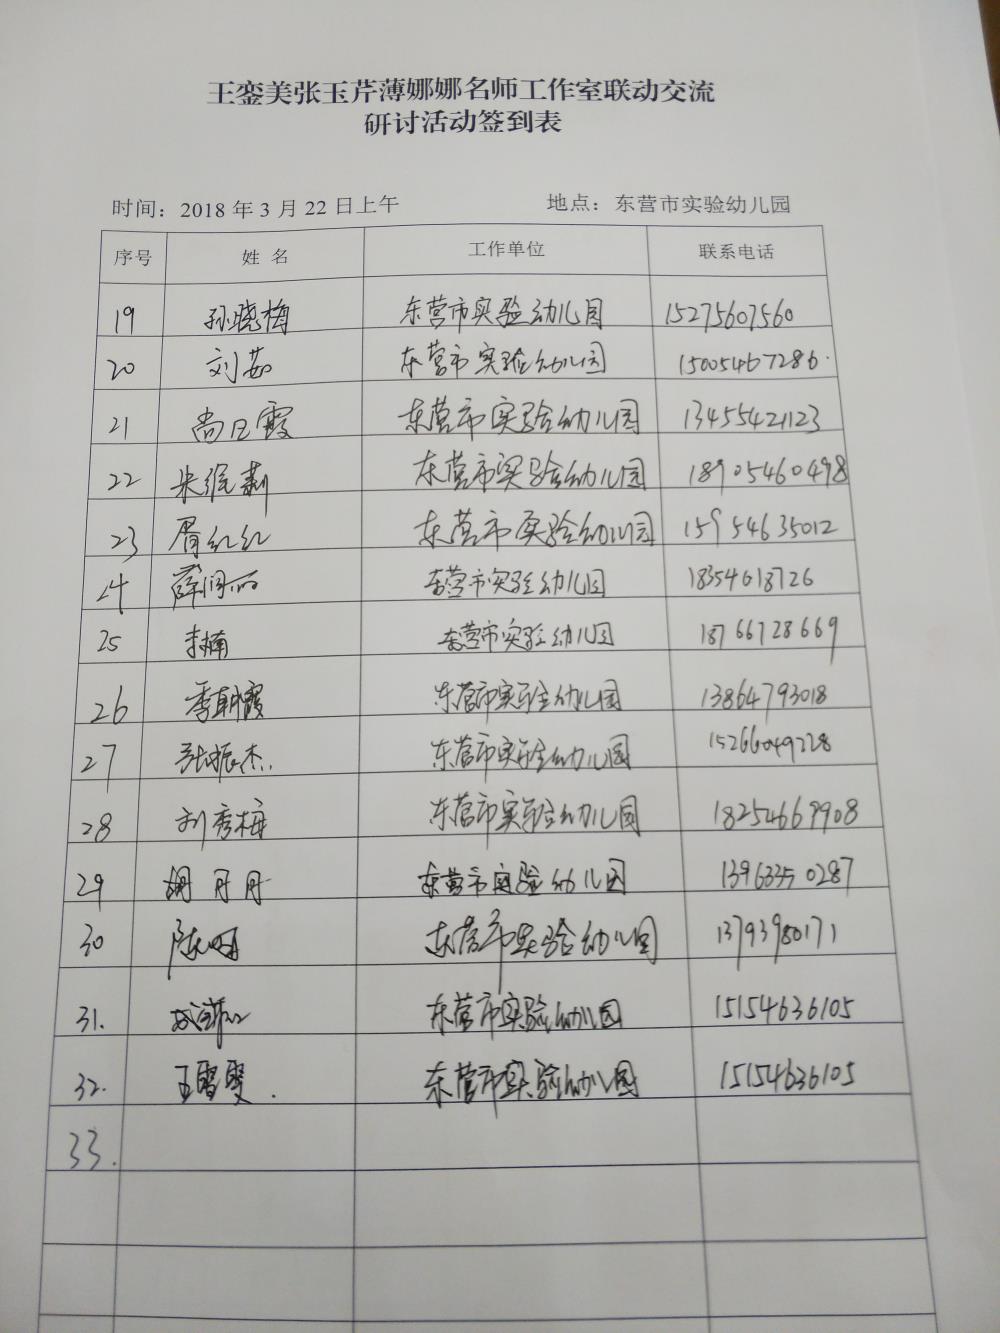 王銮美张玉芹薄娜娜名师工作室联动交流
研讨活动签到表
时间：2018年3月22日上午 地点：东营市实验幼儿园
序号 姓名 工作单位 联系电话
19 孙晓梅 东营市实验幼儿园 15275607560
20 刘茹 东营市实验幼儿园 15005467286
21 尚卫霞 东营市实验幼儿园 13455421123
22 东营市实验幼儿园 18905460498
23 胥红红 东营市实验幼儿园 15954635012
24 薛润丽 东营市实验幼儿园 18354618726
25 李楠 东营市实验幼儿园 18766728669
26 季朝霞 东营市实验幼儿园 13864793018
27 张振杰 东营市实验幼儿园 15266049228
28 刘秀梅 东营市实验幼儿园 18254669908
29 胡丹丹 东营市实验幼儿园 13963350287
30 东营市实验幼儿园 13793980171
31. 东营市实验幼儿园 15154636105
32. 王雪雯. 东营市实验幼儿园 15154636105
33.